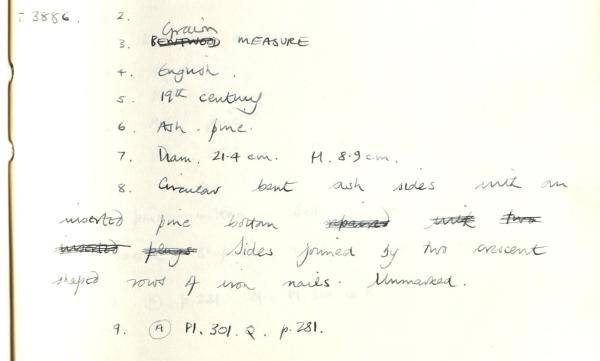 T 3886. 2.
Grain
3. BENTWOOD MEASURE
4. English.
5. 19th century
6. Ash. pine.
7. Diam. 21.4 cm. H. 8.9 cm.
8. Circular bent ash sides with an
inserted pine bottom repaired with two
inserted plugs Sides joined by two crescent
shaped rows of iron nails. Unmarked.
9. (A) Pl. 301. Q. p. 281.